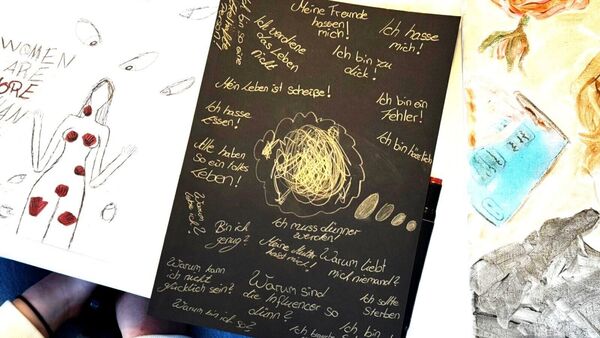 WOMEN
ARE
MORE
THAN
Meine Freunde
hassen
mich!
Ich hasse
mich!
Ich verdiene
das Leben
nicht
Ich bin zu
dick!
Mein Leben ist scheiße!
Ich bin ein
Fehler!
Ich hasse
Essen!
Alle haben
so ein tolles
Leben!
Ich muss dünner
werden!
Bin ich
genug?
Meine Mutter
hasst mich!
Warum liebt
mich niemand?
Warum kann
ich nicht
glücklich sein?
Warum sind
die Influencer so
dünn?
Ich sollte
sterben
Warum bin ich so?
Ich bin